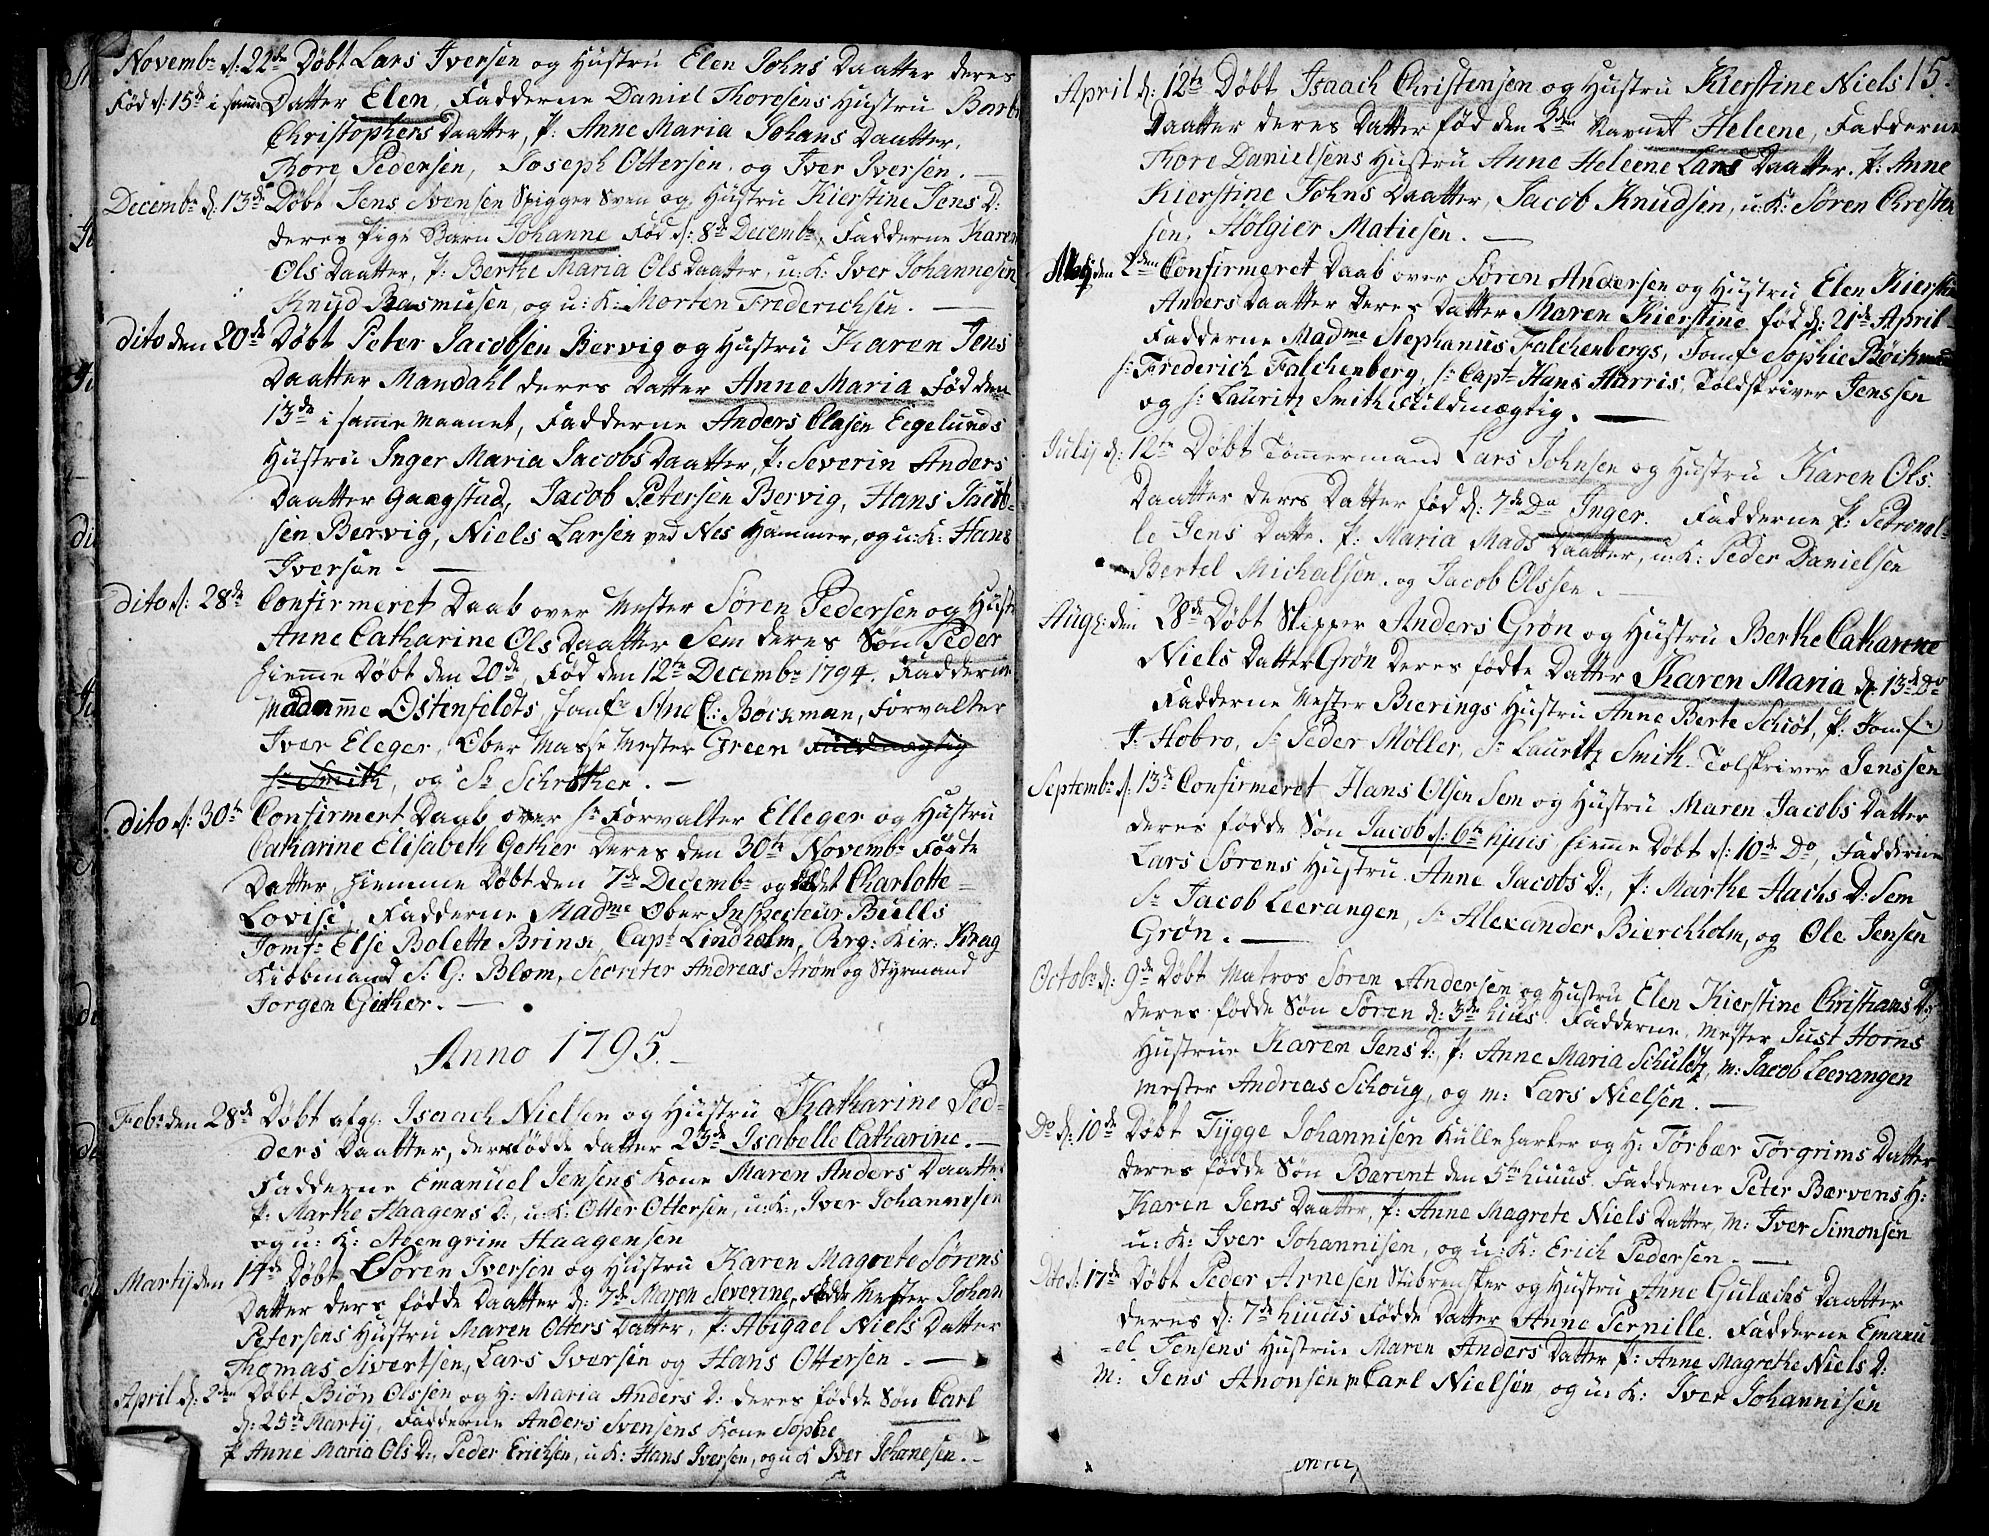 Novembr d: 22de Døbt Lars Iversen og Hustru Elen Johns Daatter deres
Fød d: 15de i samme Datter Elen, Fadderne Daniel Thoresens Hustru
Christophers Daatter, P: Anne Maria Johans Daatter,
Thore Pedersen, Joseph Ottersen, og Iver Iversen. —
Decembr d: 13de Døbt Jens Svensen Spigger Sven og Hustru Kierstine Jens D:
deres Pige Barn Johanne Fød d: 8de Decembr, Fadderne Karen
Ols Daatter, P: Berthe Maria Ols Daatter, u: K: Iver Johannesen
Knud Rasmusen, og u: K: Morten Frederichsen. —
dito den 20de Døbt Peter Jacobsen Bervig og Hustru Karen Jens
Daatter Mandahl deres Datter Anne Maria Fød den
13de i samme Maanet, Fadderne Anders Olasen Eegelunds
Hustru Inger Maria Jacobs Daatter, P: Severin Anders
Daatter Gaagstad, Jacob Petersen Bervig, Hans Jacob-
sen Bervig, Niels Larsen ved Nes Hammer, og u: K: Hans
Iversen. —
dito d: 28de Confirmeret Daab over Mester Søren Pedersen og Hustr
Anne Catharine Ols Daatter Sem deres Søn Peder
hiemme Døbt den 20de, Fød den 12te Decembr 1794. Fadderne
Madamme Østenfeldts, Jomfr Ane C: Bøckman, Forvalter
Iver Eleger, Ober Masse Mester Green Fuldmægtig
Sr Smith, og Sr Schrøther. —
dito d: 30te Confirmert Daab over Hr Forvalter Elleger og Hustru
Catharine Elisabeth Gether Deres den 30te Novembr Fødte
Datter, hiemme Døbt den 7de Decembr og kaldet Charlotte-
Lovise, Fadderne Madme Ober Inspecteur Bulls
Jomfr Else Bolette Brink, Capt Lindholm, Krag
Kiøbmand S: G: Blom, Secreter Andreas Strøm og Styrmand
Jorgen Gether. —
Anno 1795. —
Febr den 28de Døbt afg: Isaach Nielsen og Hustru Katharine Ped-
ders Daatter, deres fødde datter 23de Isabelle Catharine. —
Fadderne Emanuel Jensens Kone Maren Anders Daatter
P: Marthe Haagens D:, u: K: Otter Ottersen, u: K:, Iver Johannesen
og u: K: Steengrim Haagensen
Martij den 14de Døbt Søren Iversen og Hustru Karen Magrete Sørens
Datter ders fødde Daatter d: 7de Maren Severine, Fadde Mester Johan
Petersens Hustru Maren Otters Datter, P: Abigael Niels Datter
Thomas Sivertsen, Lars Iversen og Hans Ottersen. —
April d: 2den Døbt Biøn Olssen og H: Maria Anders D: deres fødde Søn Carl
d: 25de Martij, Fadderne Anders Svensens Kone Sophe
P Anne Maria Ols D:, Peder Erichsen, u K: Hans Iversen, og u K Iver Johanesen. —
15.
April d: 12te Døbt Isaach Christensen og Hustru Kierstine Niels
Daatter deres Datter fød den 2den Navnet Heleene, Fadderne
Thore Danielsens Hustru Anne Heleene Lars Daatter. P: Anne
Kierstine Johns Daatter, Jacob Knudsen, u: K: Søren Christen
sen, Holgier Matiesen. —
Maij den 2den Confirmeret Daab over Søren Andersen og Hustru Elen Kierstine
Anders Daatter Deres Datter Maren Kierstine fød d: 21de April
Fadderne Madme Stephanus Falchenbergs, Jomfr Sophie Bøckman
Sr Frederich Falchenberg, Sr Capt Hans Harris, Toldskriver Jenssen
og Sr Lauritz Smith Fuldmægtig. —
Julij d: 12te Døbt Tømmermand Lars Johnsen og Hustru Karen Ols
Daatter deres Datter fød d: 7de Do Inger. Fadderne P: Petronel-
le Jens Datte. P: Maria Mads Daatter, u: K: Peder Danielsen
Bertel Michalsen. og Jacob Olssen. —
Augs: den 28de Døbt Skipper Anders Grøn og Hustru Berthe Catharine
Niels Datter Grøn Deres fødte Datter Karen Maria d: 13de Do
Fadderne Mester Bierings Hustru Anne Berte Schiøt, P: Jomfr
J: Hobro, Sr Peder Møller, Sr Lauritz Smith. Tolskriver Jenssen
Septembr d: 13de Confirmeret Hans Olsen Sem og Hustru Maren Jacobs Datter
deres fødde Søn Jacob d: 6te hjuis hiemme Døbt d: 10de Do, Fadderne
Lars Sorens Hustru Anne Jacobs D:, P: Marthe Hachs D: Sem
Sr Jacob Leerangen, Sr Alexander Bierchholm, og Ole Jensen
Grøn. —
Octobr d: 9de Døbt Matros Søren Andersen og Hustru Elen Kierstine Christians D:
deres fødde Søn Søren d: 3de hius. Fadderne, Mester Just Horns
Hustrue Karen Jens D: P: Anne Maria Schultz, M: Jacob Leerangen
Mester Andreas Schoug, og m: Lars Nielsen. —
Do d: 10de Døbt Tygge Johannisen Kulle harker og H: Torbær Torgrims Datter
deres fødde Søn Bærent den 5te huius. Fadderne Peter Bærvens H:
Karen Jens Daatter, P: Anne Magrete Niels Datter, M: Iver Simonsen
u: K: Iver Johannisen, og u: K: Erich Pedersen. —
Dito d: 17de Døbt Peder Arnesen Stubrensker og Hustru Anne Gulachs Daatter
deres d: 7de huius Fødde Datter Anne Pernille. Fadderne Emanu
-el Jensens Hustrue Maren Anders Datter P: Anne Magrethe Niels D:
M: Jens Anonsen M Carl Nielsen, og u: K: Iver Johannisen